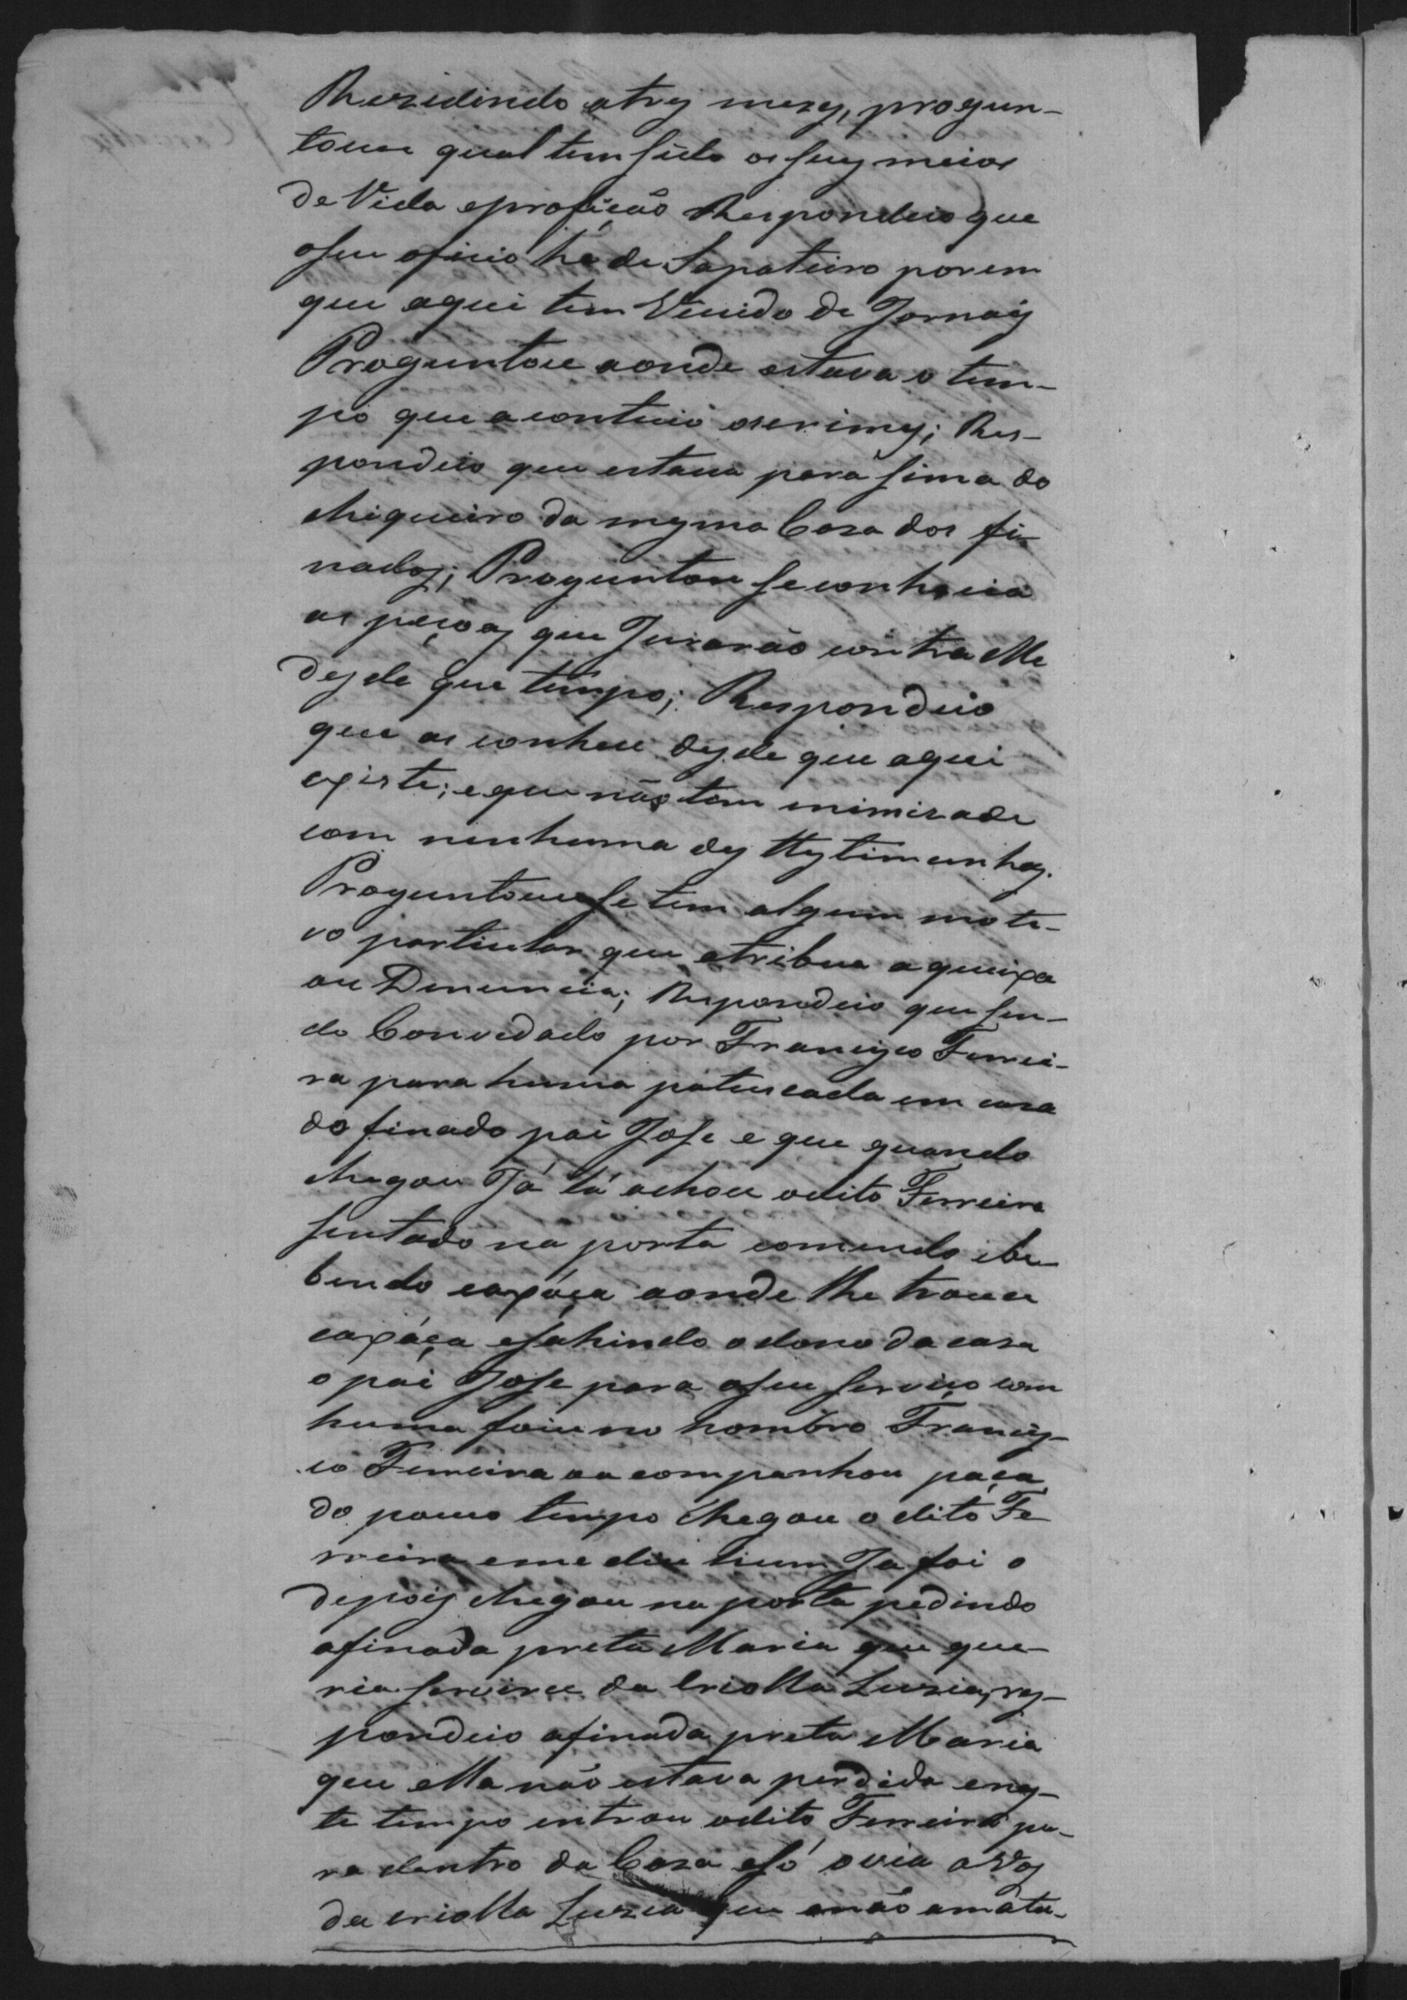 Rezidindo atrez mezez, progun-
tou qual tem sido os seuz meios
de Vida eprofição Respondeio que
oseu oficio hé de Sapateiro porem
que aqui tem Vivido de Jornaiz
Proguntou aonde estava o tem-
po que aconteceo oscrimez; Res-
pondeio que estava para sima do
chiqueiro da mezma Caza dos fi-
nadoz; Proguntou seconhecia
as peçoaz que Jurarão contra elle
dezde que tempo; Respondeio
que as conhece dezde que aqui
existe; eque não tem inimizade
com nenhuma dez teztimunhaz.
Proguntou se tem algum moti-
vo particular que atribua aqueixa
ou Denuncia; Respondeio que sen-
do Convidado por Francizco Ferrei-
ra para huma patuscada em caza
do finado pai Joze e que quando
chegou Já lá achou odito Ferreira
sentado na porta comendo ebe-
bendo caxáça aonde lhe trouce
caxáça esahindo odono da caza
o pai Joze para oseu serviço com
huma foice no hombro Franciz-
co Ferreira oacompanhou paça
do pouco tempo chegou o dito Fe
rreira eme dice hum Ja foi o
depoiz chegou na porta pedindo
afinada preta Maria que que-
ria servirce da criolla Luzia, rez-
pondeio afinada preta Maria
que ella não estava perdida enez-
te tempo entrou odito Ferreira pa-
ra dentro da Caza esó ovia aVoz
da criolla Luzia que anão amáta-